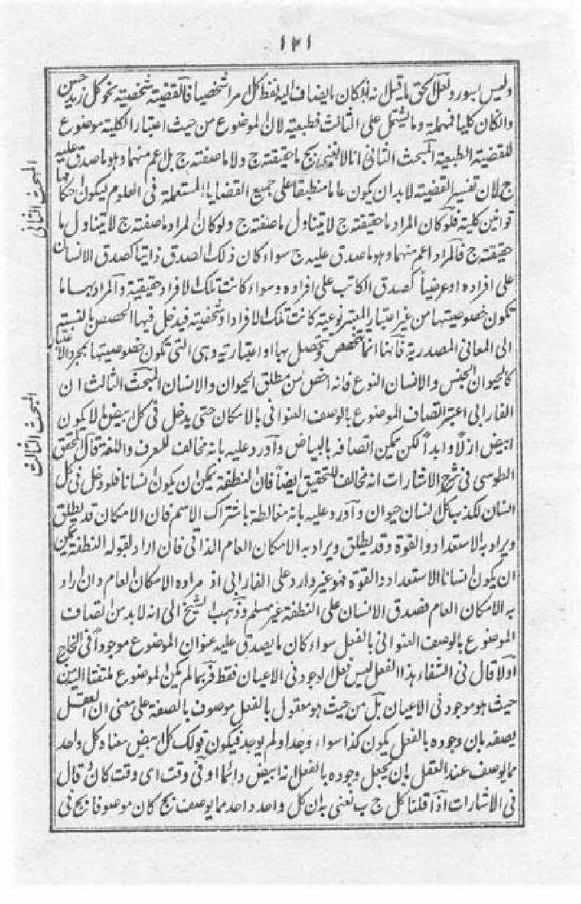 ١٢١
وليس بسور ولعل الحق انه قبل انه اذا كان المضاف اليه لفظ كل امرا شخصيا فالقضية شخصية نحو كل زيد حسن
وان كان كليا فمهملة وما يشتمل على الثالث فطبعية لان الموضوع من حيث اعتبار الكلية موضوع
للقضية الطبعية المبحث الثانى انا لا نعنى بج ما حقيقته ج ولا ما صفته ج بل اعم منهما وهو ما صدق عليه
ج لان تفسير القضية لا بد ان يكون عاما منطبقا على جميع القضايا المستعملة فى العلوم ليكون احكامها
قوانين كلية فلو كان المراد ما حقيقته ج لا يتناول ما صفته ج ولو كان المراد ما صفته ج لا يتناول ما
حقيقته ج فالمراد اعم منهما وهو ما صدق عليه ج سواء كان ذلك الصدق ذاتيا كصدق الانسان
على افراده او عرضيا كصدق الكاتب على افراده وسواء كانت تلك الافراد حقيقية والمراد بها ما
تكون خصوصيتها من غير اعتبار المعتبر نوعية كانت تلك الافراد او شخصية فيدخل فيها الحصص بالنسبة
الى المعانى المصدرية فانها انما تتخصص وتحصل بها او اعتبارية وهى التى تكون خصوصيتها بمجرد الاعتبار
كالحيوان الجنس والانسان النوع فانه اخص من مطلق الحيوان والانسان المبحث الثالث ان
الفارابى اعتبر اتصاف الموضوع بالوصف العنوانى بالامكان حتى يدخل فى كل ابيض ما لا يكون
ابيض ازلا وابدا لكن يمكن اتصافه بالبياض واورد عليه بانه مخالف للعرف واللغة قال المحقق
الطوسى فى شرح الاشارات انه مخالف للتحقيق ايضا فان النطفة يمكن ان يكون انسانا فلو دخل فى كل
انسان لكذب كل انسان حيوان واورد عليه بانه مغالطة باشتراك الاسم فان الامكان قد يطلق
ويراد به الاستعداد والقوة وقد يطلق ويراد به الامكان العام الذاتى فان اراد بقوله النطفة يمكن
ان يكون انسانا الاستعداد والقوة فهو غير وارد على الفارابى اذ مراده الامكان العام وان اراد
به الامكان العام فصدق الانسان على النطفة غير مسلم وذهب الشيخ الى انه لا بد من اتصاف
الموضوع بالوصف العنوانى بالفعل سواء كان ما يصدق عليه عنوان الموضوع موجودا فى الخارج
اولا قال فى الشفاء هذا الفعل ليس فعل الوجود فى الاعيان فقط فربما لم يكن الموضوع ملتفتا اليه من
حيث هو موجود فى الاعيان بل من حيث هو معقول بالفعل موصوف بالصفة على معنى ان العقل
يصفه بان وجوده بالفعل يكون كذا سواء وجد او لم يوجد فيكون قولك كل ابيض معناه كل واحد
مما يوصف عند العقل بان يجعل وجوده بالفعل انه ابيض دائما او فى وقت اى وقت كان وقال
فى الاشارات اذا قلنا كل ج ب نعنى به ان كل واحد واحد مما يوصف بج كان موصوفا بج فى
المبحث الثانى
المبحث الثالث